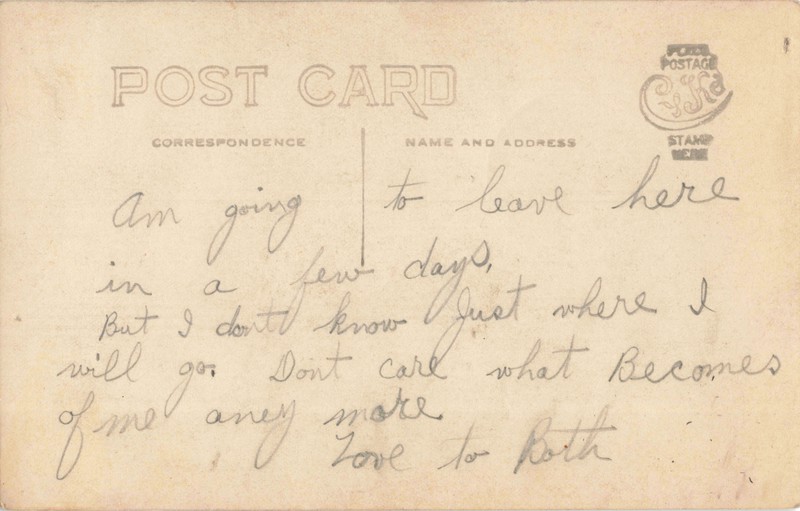 POST CARD
PLACE
POSTAGE
STAMP
HERE
CORRESPONDENCE
NAME AND ADDRESS
Am going to leave here
in a few days,
But I dont know Just where I
will go. Dont care what Becomes
of me aney more
Love to Roth